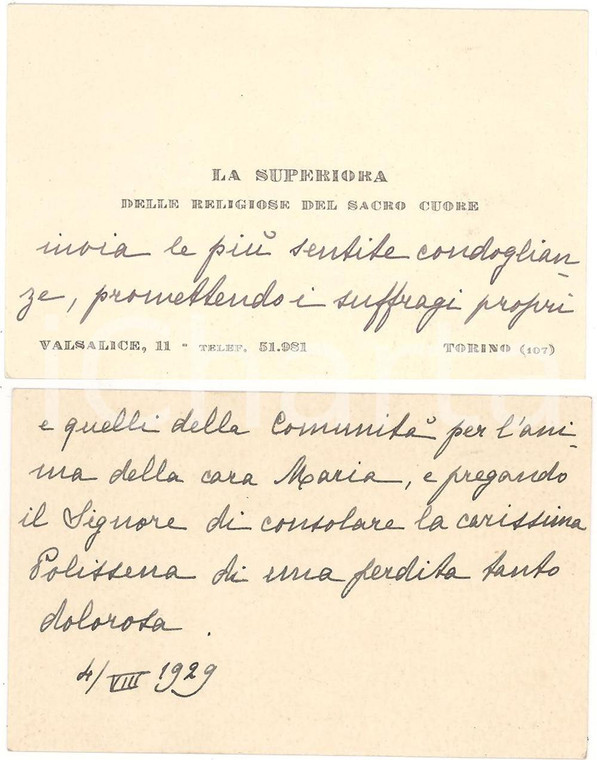 LA SUPERIORA
DELLE RELIGIOSE DEL SACRO CUORE
invia le più sentite condoglian-
ze, promettendo i suffragi propri
VALSALICE, 11 - TELEF. 51.981 TORINO (107)
e quelli della Comunità per l'ani-
ma della cara Maria, e pregando
il Signore di consolare la carissima
Polissena di una perdita tanto
dolorosa.
4/VIII 1929